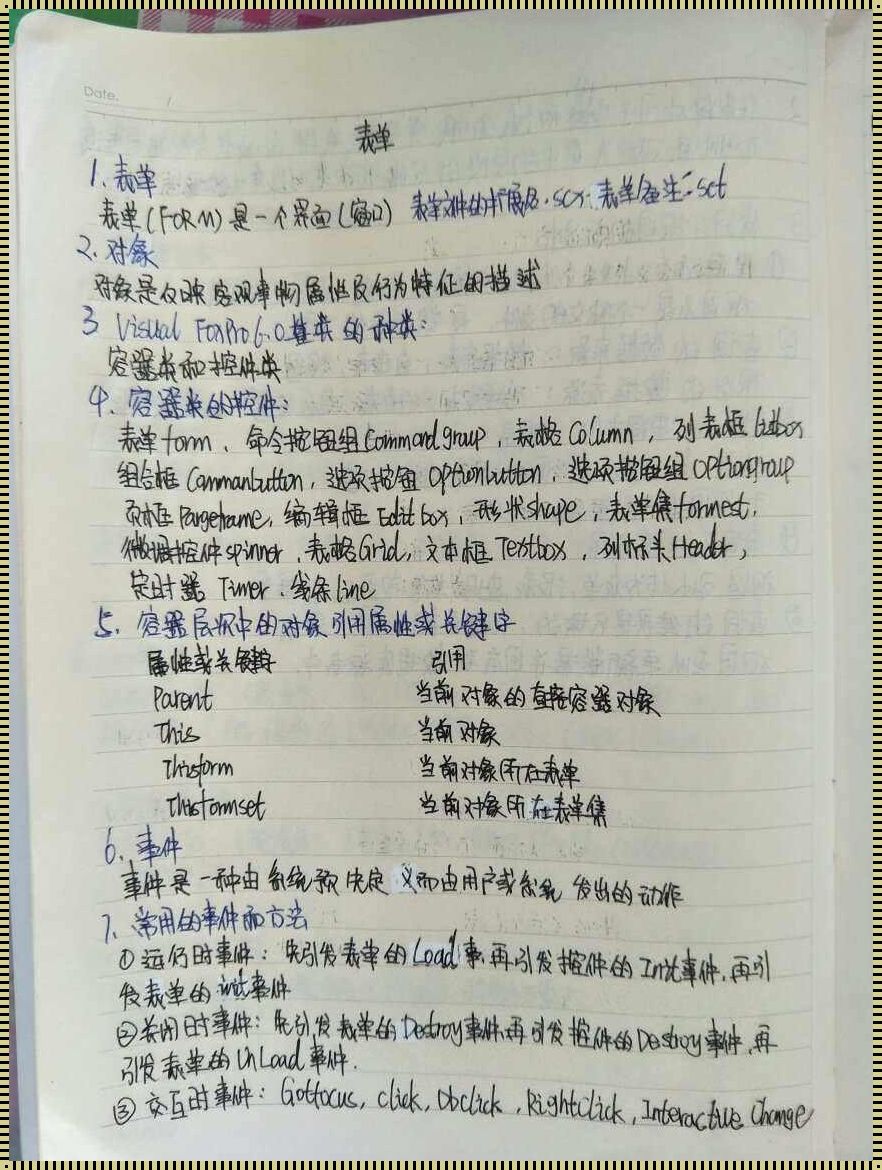 Date.
表单
1. 表单
表单(FORM)是一个界面(窗口) 表单文件的扩展名.scx. 表单备注.sct
2. 对象
对象是反映客观事物属性及行为特征的描述
3 Visual FoxPro 6.0基类的种类:
容器类和控件类
4. 容器类的控件:
表单form、命令按钮组Commandgroup, 表格Column, 列表框listbox
组合框Commanbutton, 选项按钮Optionbutton, 选项按钮组Optiongroup
页框Pargeframe, 编辑框Editbox, 形状shape, 表单集formest,
微调控件spinner, 表格Grid, 文本框Textbox, 列标头Header,
定时器 Timer、线条line
5. 容器层次中的对象引用属性或关键字
属性或关键字 引用
Parent 当前对象的直接容器对象
This 当前对象
Thisform 当前对象所在表单
Thisformset 当前对象所在表单集
6. 事件
事件是一种由系统预决定义而由用户或系统发出的动作
7. 常用的事件和方法
①运行时事件: 先引发表单的Load事,再引发控件的Init事件,再引
发表单的init事件
②关闭时事件: 先引发表单的Destroy事件,再引发控件的Destroy事件,再
引发表单的UnLoad事件.
③交互时事件: Gotfocus, click, Dbclick, Rightclick, Interactive Change